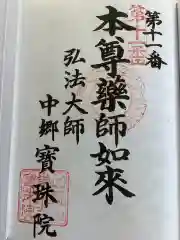 第十一番
本尊藥師如來
弘法大師
中郷 寳珠院